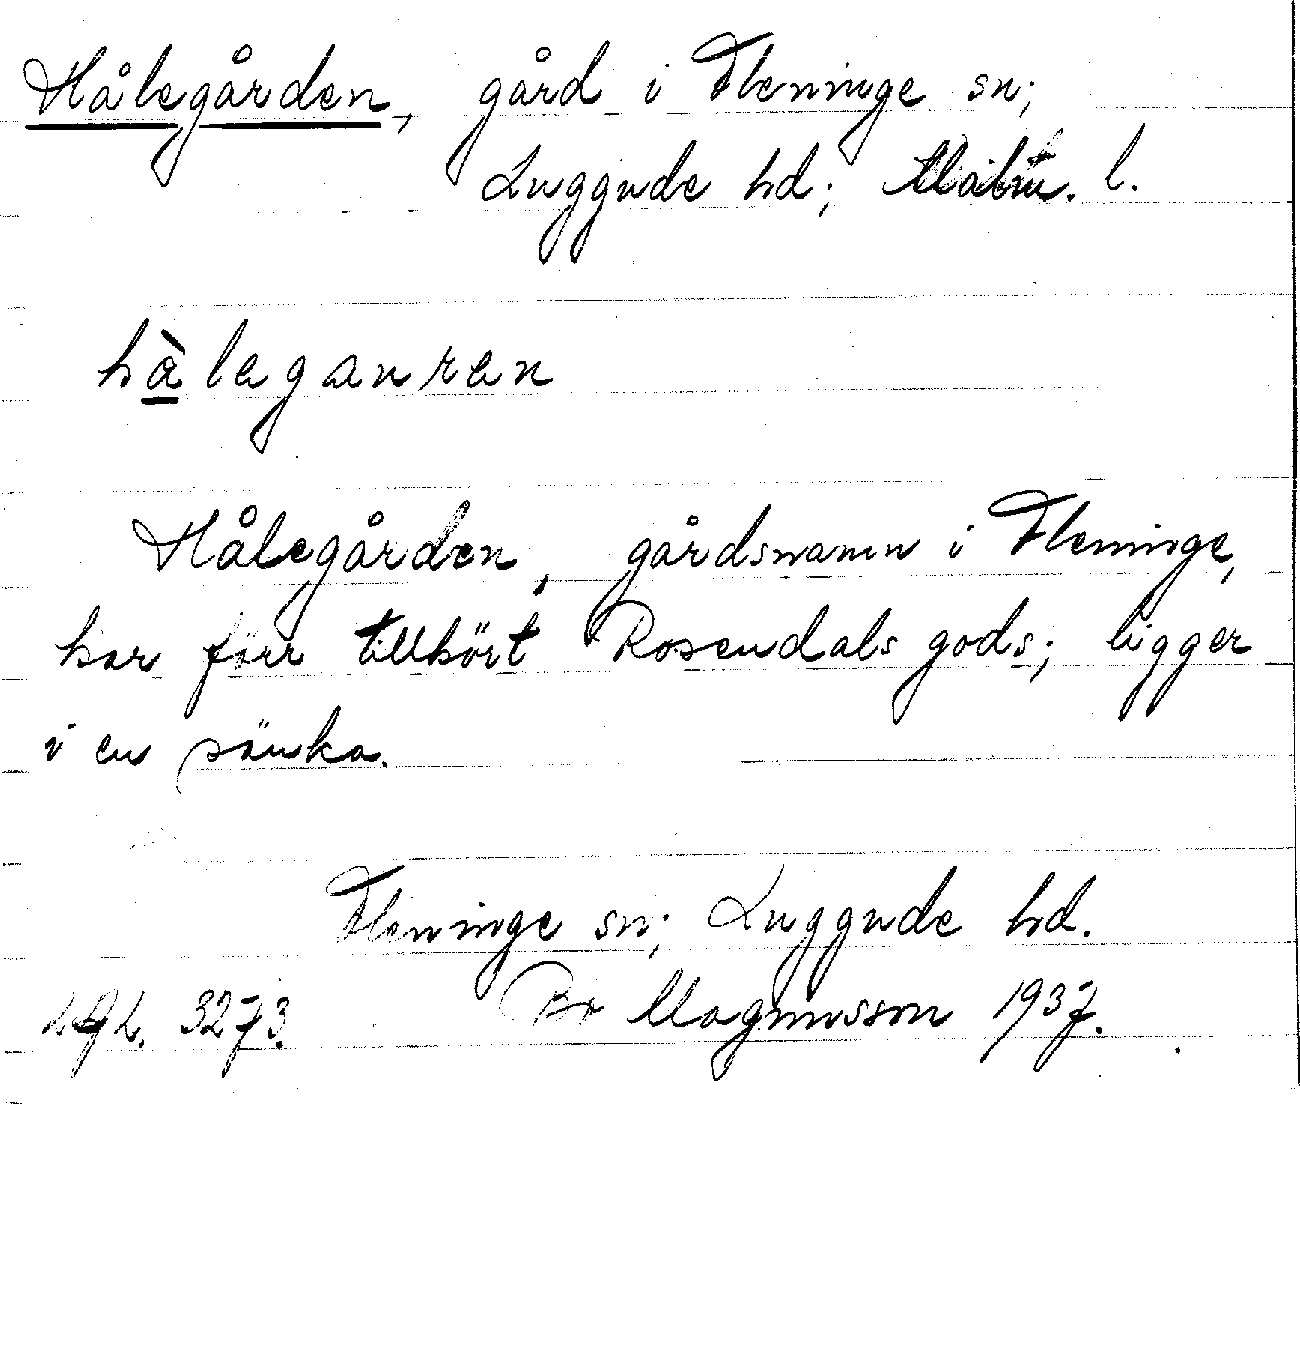 Hålegården, gård i Fleninge sn;
Luggude hd; Malm. l.
hàleganren
Hålegården, gårdsnamn i Fleninge,
har förr tillhört Rosendals gods; ligger
i en sänka.
Fleninge sn; Luggude hd.
LAL. 3273. Bo Magnusson 1937.